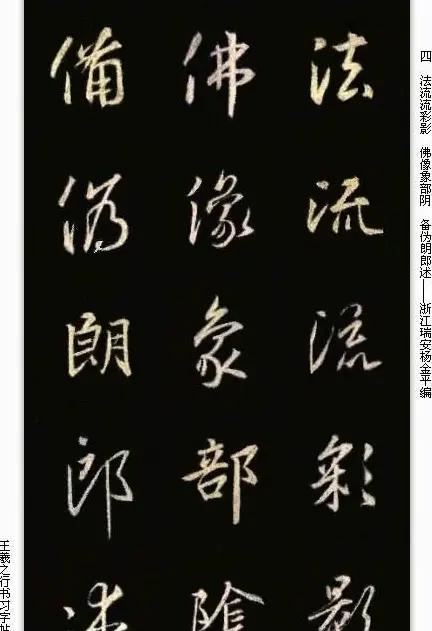 四 法流流彩影 佛像象部阴 备伪朗郎述——浙江瑞安杨金平编
法流流彩影
佛像象部陰
備偽朗郎述
王羲之行书习字帖